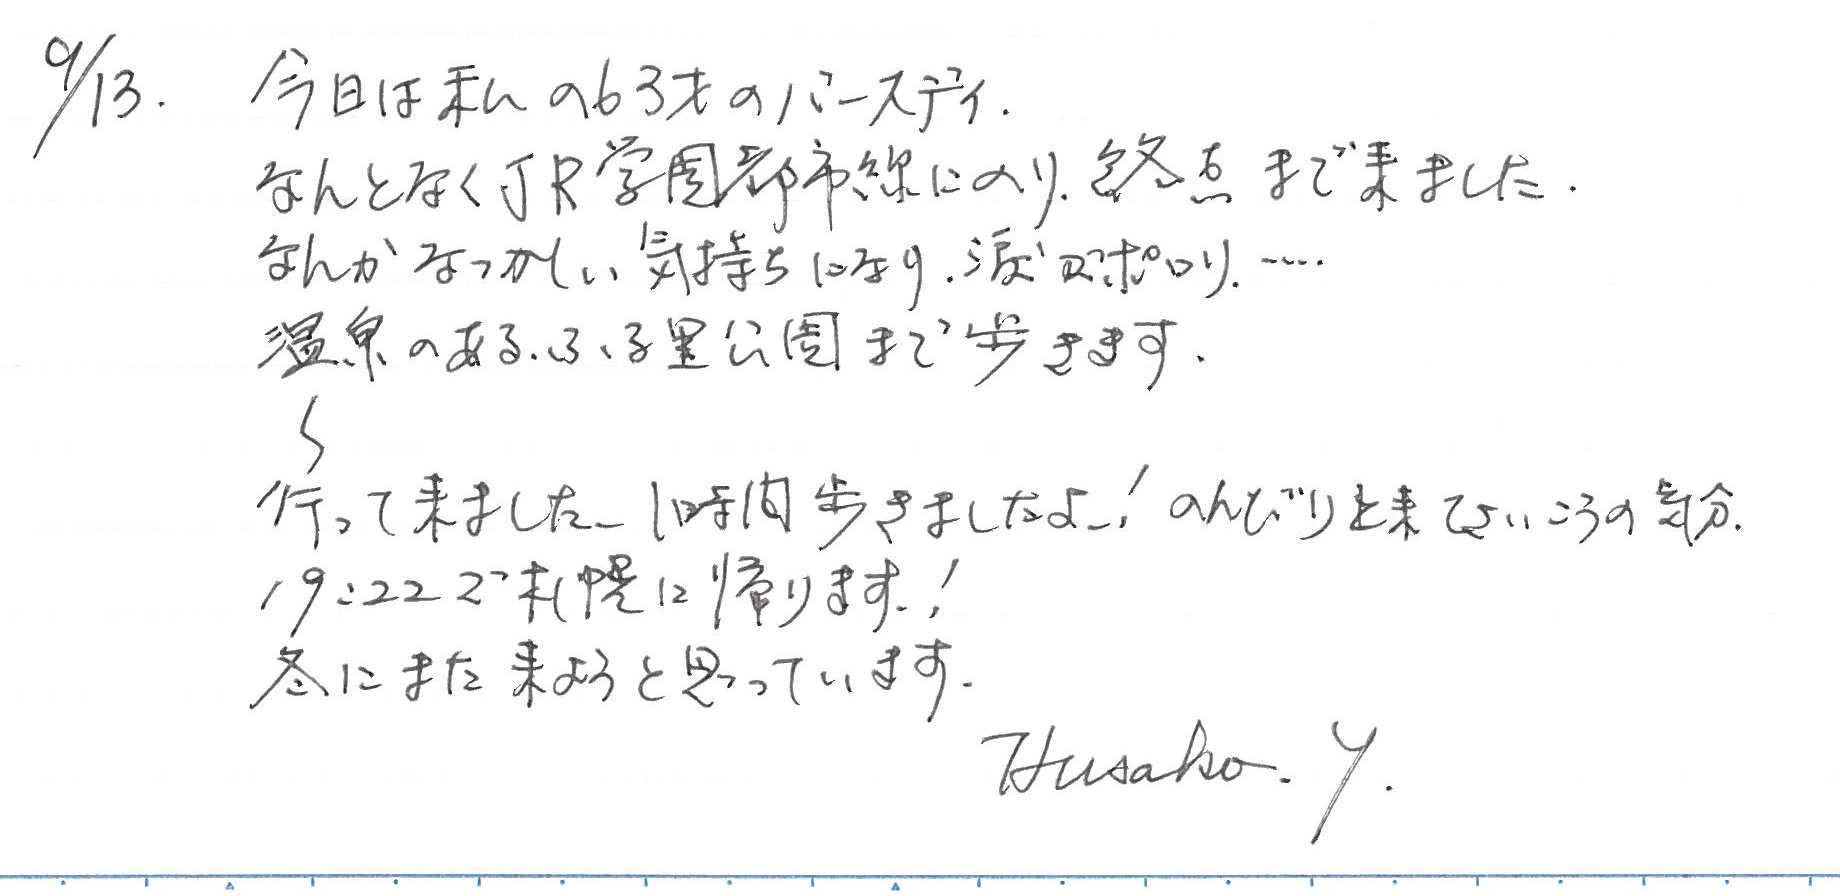 9/13. 今日は私の63才のバースディ.
なんとなくJR学園都市線にのり.終点まで来ました.
なんかなつかしい気持ちになり.涙がポロリ.……
温泉のある.ふる里公園まで歩きます.
〜
行って来ました_1時間歩きましたよ_! のんびりと来て いころの気分.
19:22で札幌に帰ります.!
冬にまた来ようと思っています.
Husako. Y.